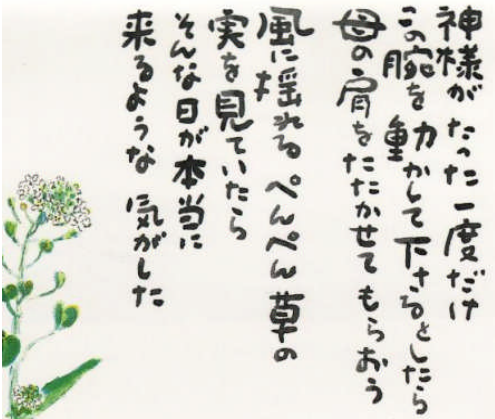 神様がたった一度だけ
この腕を動かして下さるとしたら
母の肩をたたかせてもらおう
風に揺れるぺんぺん草の
実を見ていたら
そんな日が本当に
来るような気がした